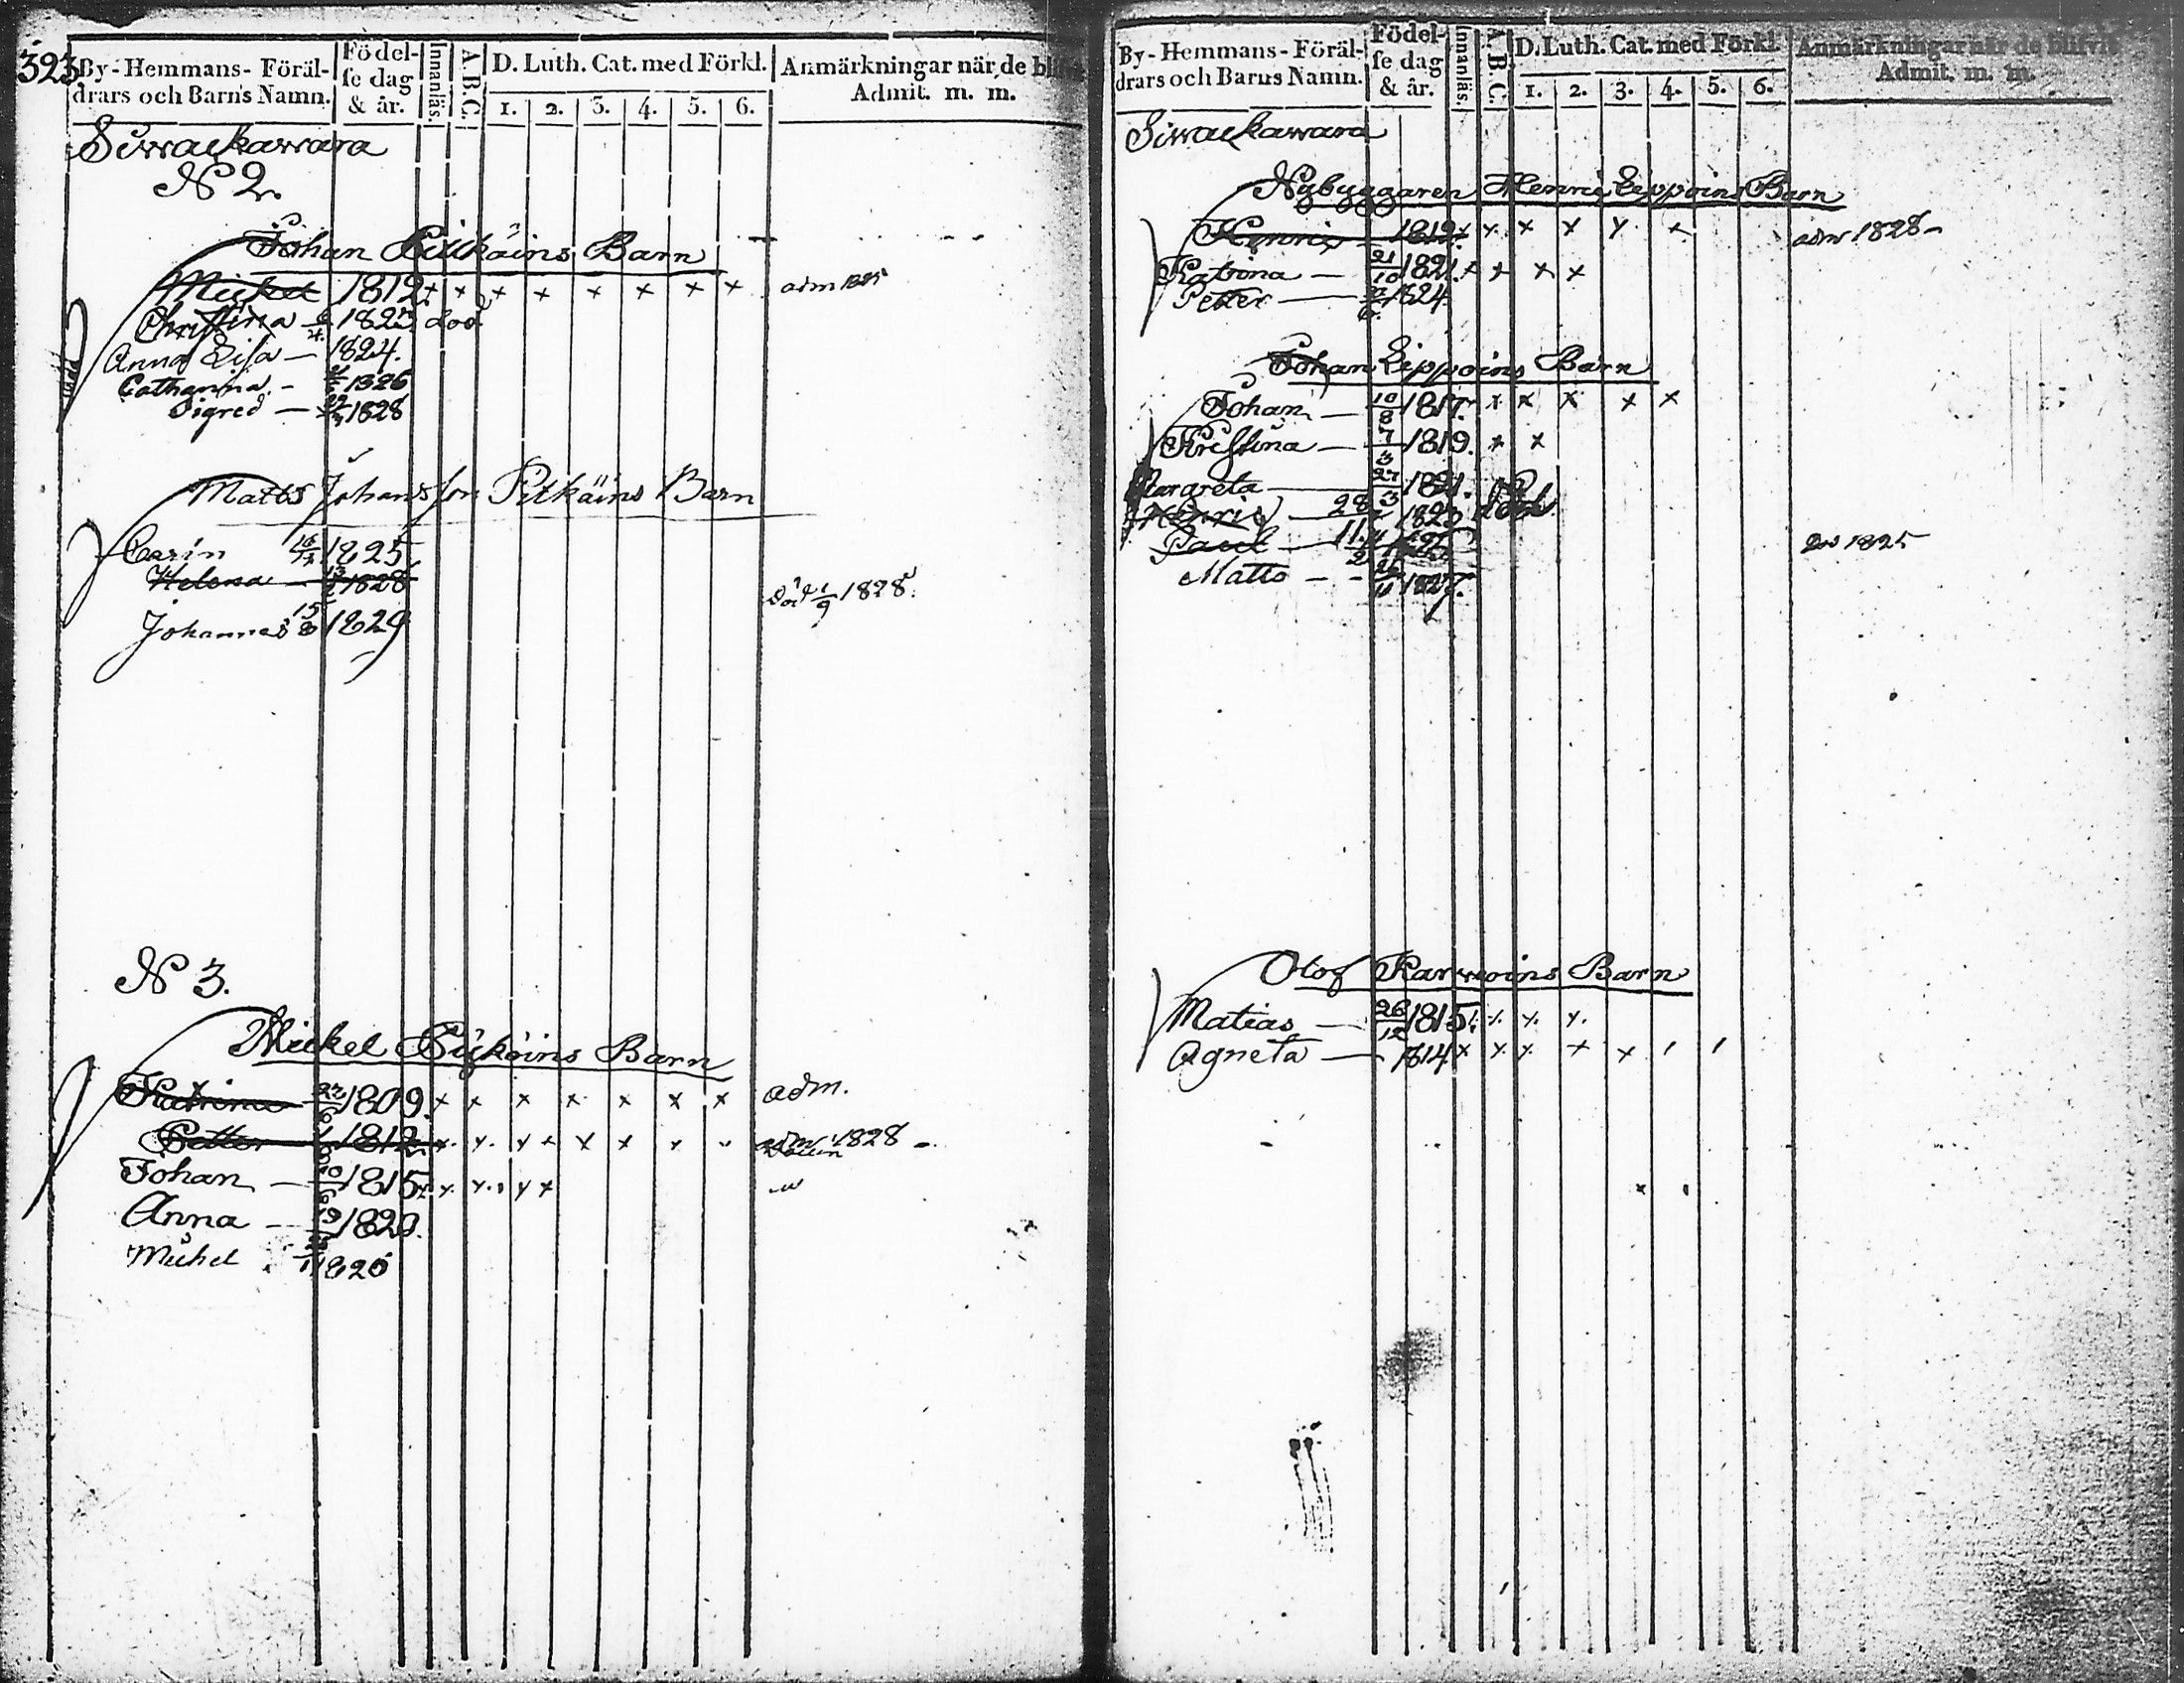 393
By-Hemmans-Föräl-
drars och Barns Namn.
Födel-
se dag
& år.
Innanläs.
A.B.C.
D. Luth. Cat. med Förkl.
1. 2. 3. 4. 5. 6.
Anmärkningar när de blifvit
Admit. m. m.
Siwackawara
N 2.
Johan Pitkäins Barn
Mickel 1812 x x x x x x x x adm
Christina 1823 död
Anna Lisa — 1824.
Catharina - 1826
Sigred — 1828
Matts Johansson Pitkäins Barn
Carin 1825
Helena — 1828 död 1/9 1828.
Johannes 15/8 1829
N 3.
Mickel Pitkäins Barn
Katrina 1809. x x x x x x x adm.
Petter 1812 x x x x x x x adm 1828 -
Johan — 1815 x x x x x
Anna — 1820.
Mickel
By-Hemmans-Föräl-
drars och Barns Namn.
Födel-
se dag
& år.
Innanläs.
A.B.C.
D. Luth. Cat. med Förkl.
1. 2. 3. 4. 5. 6.
Anmärkningar när de blifvit
Admit. m. m.
Siwackawara
Nybyggaren Henric Leppoins Barn
Henric 1812. x x x x x x adm 1828 -
Katrina — 21/10 1821. x x x x
Petter — 1824.
Johan Leppoins Barn
Johan — 10/8 1817. x x x x x
Kristina — 7/3 1819. x x
Margreta — 27/3 1821.
Henric — 28 1823 död
Paul — 11 1825
Matts — 1827.
Olof Karwoins Barn
Matias — 26/12 1815 x x x x
Agneta — 1814 x x x x x